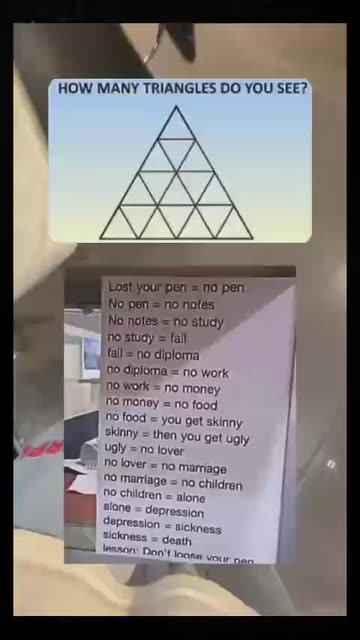 HOW MANY TRIANGLES DO YOU SEE?
Lost your pen = no pen
No pen = no notes
No notes = no study
no study = fail
fail = no diploma
no diploma = no work
no work = no money
no money = no food
no food = you get skinny
skinny = then you get ugly
ugly = no lover
no lover = no marriage
no marriage = no children
no children = alone
alone = depression
depression = sickness
sickness = death
lesson: Don't loose your pen